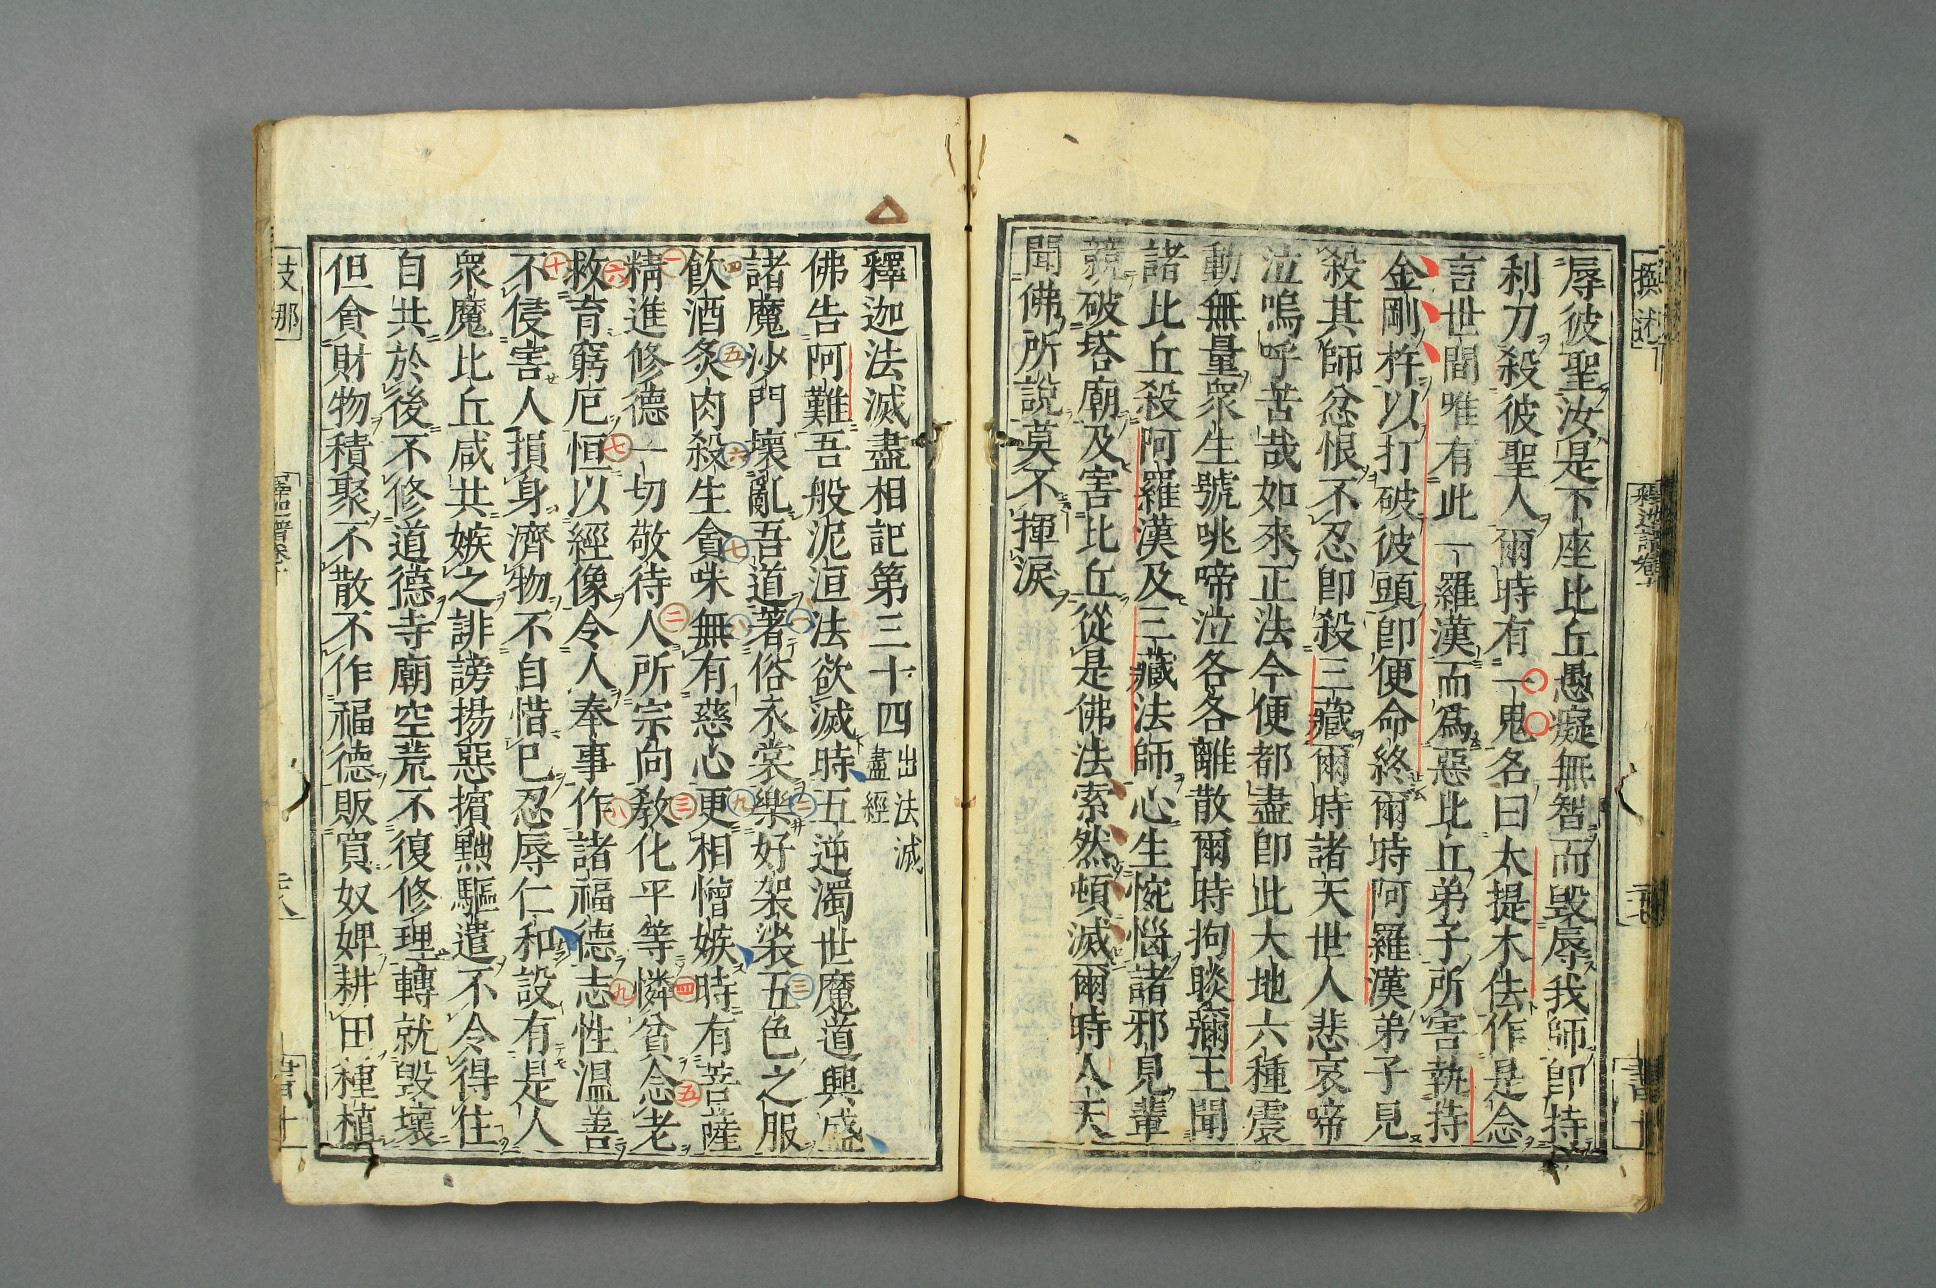 撰述
釋迦譜卷十
辱彼聖汝是下座比丘愚癡無智而毀辱我師卽持
利刀殺彼聖人爾時有一鬼名曰太提木佉作是念
言世間唯有此一羅漢而爲惡比丘弟子所害執持
金剛杵以打破彼頭卽便命終爾時阿羅漢弟子見
殺其師忿恨不忍卽殺三藏爾時諸天世人悲哀啼
泣嗚呼苦哉如來正法今便都盡卽此大地六種震
動無量衆生號咷啼泣各各離散爾時拘睒彌王聞
諸比丘殺阿羅漢及三藏法師心生惋惱諸邪見輩
競破塔廟及害比丘從是佛法索然頓滅爾時人天
聞佛所說莫不揮淚
釋迦法滅盡相記第三十四
出法滅
盡經
佛告阿難吾般泥洹法欲滅時五逆濁世魔道興盛
諸魔沙門壞亂吾道著俗衣裳樂好袈裟五色之服
飲酒炙肉殺生貪味無有慈心更相憎嫉時有菩薩
精進修德一切敬待人所宗向敎化平等憐貧念老
救育窮厄恒以經像令人奉事作諸福德志性溫善
不侵害人損身濟物不自惜巳忍辱仁和設有是人
衆魔比丘咸共嫉之誹謗揚惡擯黜驅遣不令得住
自共於後不修道德寺廟空荒不復修理轉就毀壞
但貪財物積聚不散不作福德販賣奴婢耕田種植
支那